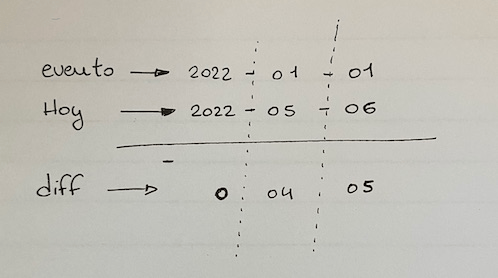 evento → 2022 - 01 - 01
Hoy → 2022 - 05 - 06
-
diff → 0 04 05